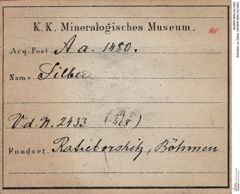 K. K. Mineralogisches Museum.
Acq.-Post Aa. 1480.
Name Silber
Vd. N. 2433
Fundort. Ratieborzitz, Böhmen